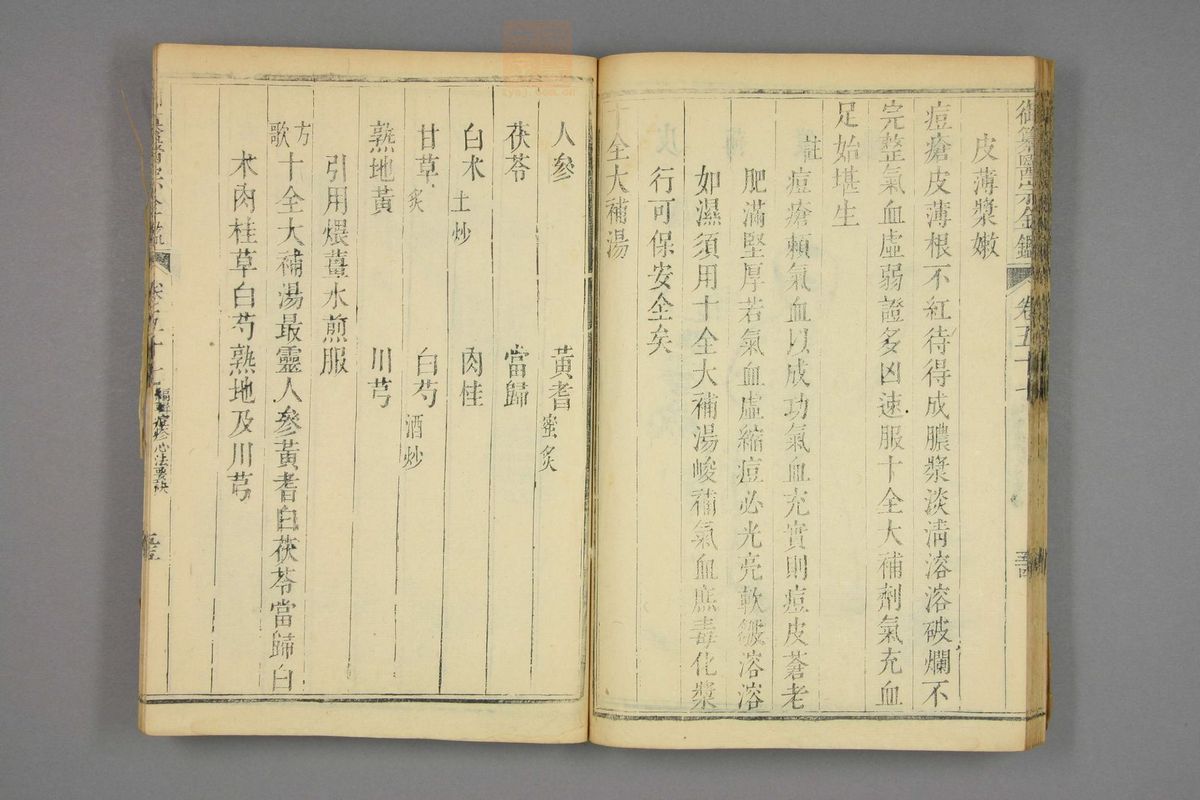 御纂醫宗金鑑 卷五十七
皮薄漿嫩
痘瘡皮薄根不紅待得成膿漿淡清溶溶破爛不
完整氣血虛弱證多凶速服十全大補劑氣充血
足始堪生
註痘瘡賴氣血以成功氣血充實則痘皮蒼老
肥滿堅厚若氣血虛縮痘必光亮軟皺溶溶
如濕須用十全大補湯峻補氣血庶毒化漿
行可保安全矣
十全大補湯
人參 黃耆蜜炙
茯苓 當歸
白朮土炒 肉桂
甘草炙 白芍酒炒
熟地黃 川芎
引用煨薑水煎服
方歌十全大補湯最靈人參黃耆白茯苓當歸白
朮肉桂草白芍熟地及川芎
卷五十七 編輯痘疹心法要訣